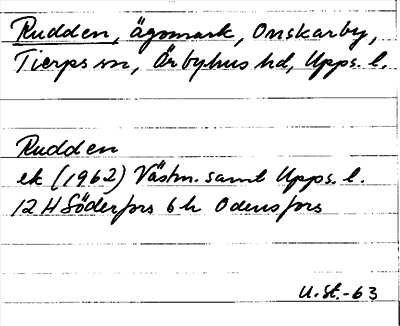 Rudden, ägomark, Onskarby,
Tierps sn, Örbyhus hd, Upps. l.
Rudden
ek (1962) Västm. samt Upps. l.
12 H Söderfors 6 h Odensfors
U. St.-63